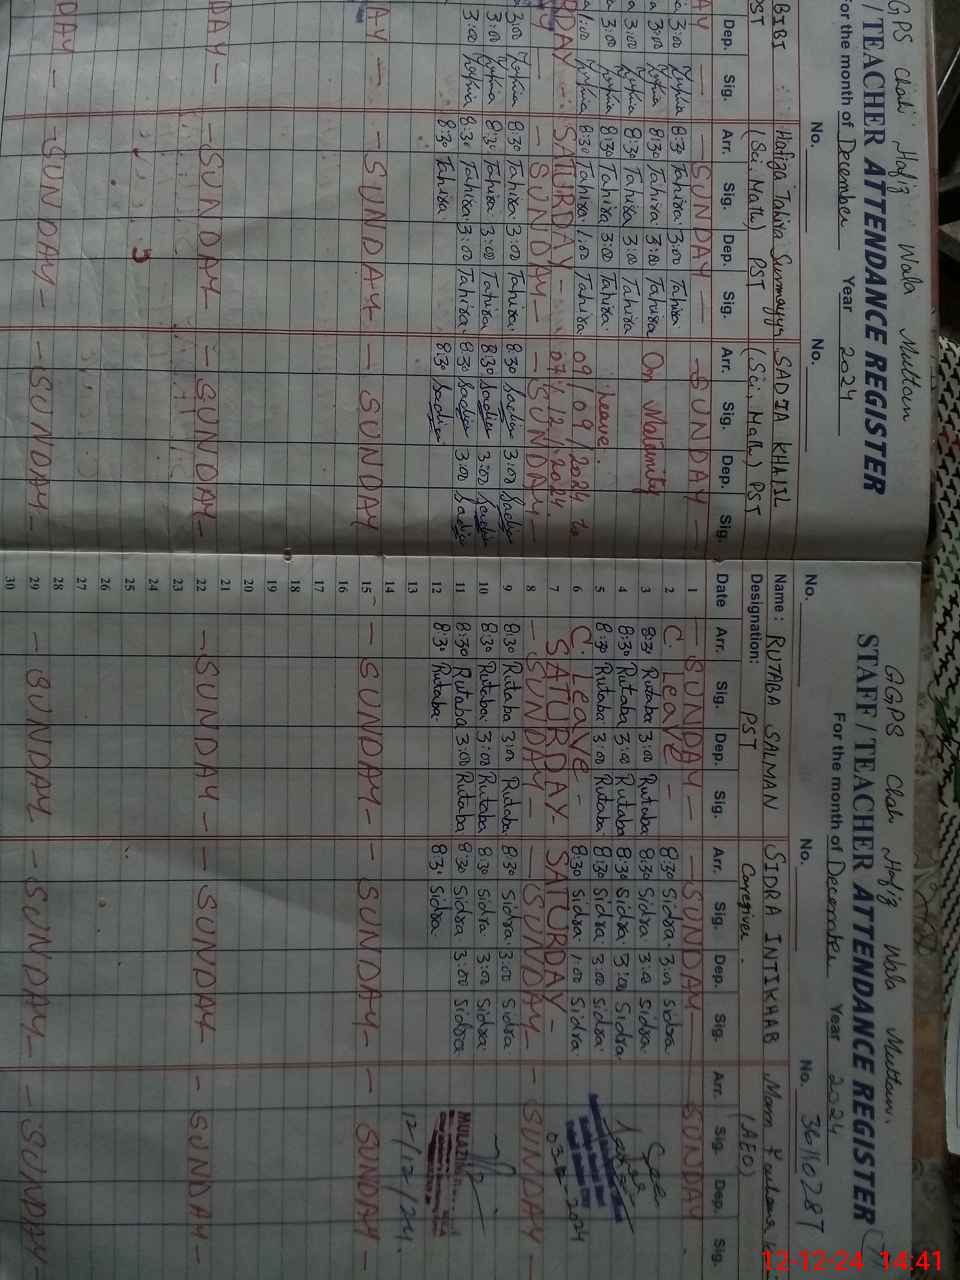 GGPS Chah Hafiz Wala Multan
/ TEACHER ATTENDANCE REGISTER
For the month of December Year 2024
No. No.
BIBI Hafiza Tahira Sumayya SADIA KHALIL
PST (Sci. Math) PST (Sci, Math) PST
Dep. Sig. Arr. Sig. Dep. Sig. Arr. Sig. Dep. Sig.
— SUNDAY — — SUNDAY —
3:00 8:30 Tahira 3:00 Tahira
3:00 8:30 Tahira 3:00 Tahira On Maternity
3:00 8:30 Tahira 3:00 Tahira
3:00 8:30 Tahira 3:00 Tahira leave
1:00 8:30 Tahira 1:00 Tahira 09/09/2024 to
DAY — SATURDAY — 07/12/2024.
— SUNDAY — — SUNDAY —
3:00 8:30 Tahira 3:00 Tahira 8:30 Sadia 3:00 Sadia
3:00 8:30 Tahira 3:00 Tahira 8:30 Sadia 3:00 Sadia
3:00 8:30 Tahira 3:00 Tahira 8:30 Sadia 3:00 Sadia
8:30 Tahira 8:30 Sadia
AY — — SUNDAY — SUNDAY
DAY — — SUNDAY — — SUNDAY —
DAY — — SUNDAY — — SUNDAY —
GGPS Chah Hafiz Wala Multan.
STAFF / TEACHER ATTENDANCE REGISTER
For the month of December Year 2024
No. No. No. 36110287
Name: RUTABA SALMAN SIDRA INTIKHAB Mam
Designation: PST Caregiver. (AEO)
Date Arr. Sig. Dep. Sig. Arr. Sig. Dep. Sig. Arr. Sig. Dep. Sig.
1 — SUNDAY — — SUNDAY — — SUNDAY
2 C. Leave — 8:30 Sidra 3:00 Sidra
3 8:30 Rutaba 3:00 Rutaba 8:30 Sidra 3:00 Sidra
4 8:30 Rutaba 3:00 Rutaba 8:30 Sidra 3:00 Sidra
5 8:30 Rutaba 3:00 Rutaba 8:30 Sidra 3:00 Sidra
6 C. Leave — 8:30 Sidra 1:00 Sidra
7 SATURDAY — SATURDAY —
8 — SUNDAY — — SUNDAY — SUNDAY —
9 8:30 Rutaba 3:00 Rutaba 8:30 Sidra 3:00 Sidra
10 8:30 Rutaba 3:00 Rutaba 8:30 Sidra 3:00 Sidra
11 8:30 Rutaba 3:00 Rutaba 8:30 Sidra 3:00 Sidra
12 8:30 Rutaba 8:3 Sidra
13
14 12/12/24.
15 — SUNDAY — — SUNDAY — SUNDAY —
16
17
18
19
20
21
22 — SUNDAY — — SUNDAY — — SUNDAY —
23
24
25
26
27
28
29 — SUNDAY — — SUNDAY — — SUNDAY —
30
12-12-24 14:41